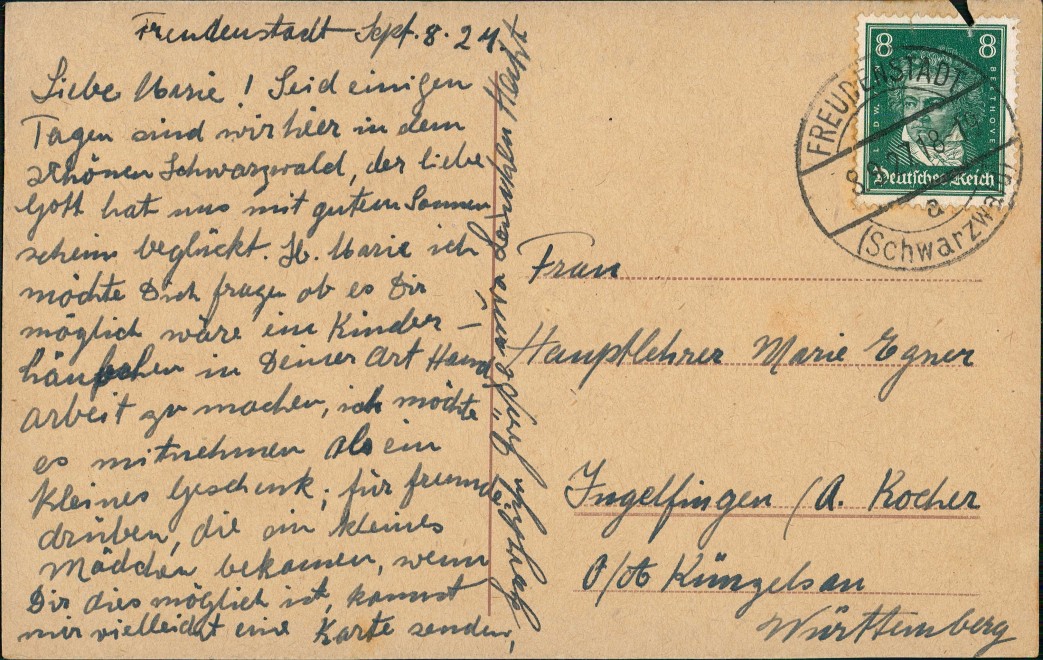 Freudenstadt Sept. 8. 27.
Liebe Marie! Seid einigen
Tagen sind wir hier in dem
schönen Schwarzwald, der liebe
Gott hat uns mit gutem Sonnen
schein beglückt. Lb. Marie ich
möchte Dich fragen ob es Dir
möglich wäre ein Kinder-
häubchen in Deiner Art Hand
arbeit zu machen, ich möchte
es mitnehmen als ein
kleines Geschenk, für Freunde
drüben, die ein kleines
Mädchen bekamen, wenn
Dir dies möglich ist, kannst
mir vielleicht eine Karte senden,
herzlich grüßt
FREUDENSTADT
8.9.27.18-19
a
(Schwarzwald)
8 8
LUDW. V. BEETHOVEN
Deutsches Reich
Frau
Hauptlehrer Marie Egner
Ingelfingen /A. Kocher
O/A Künzelsau
Württemberg